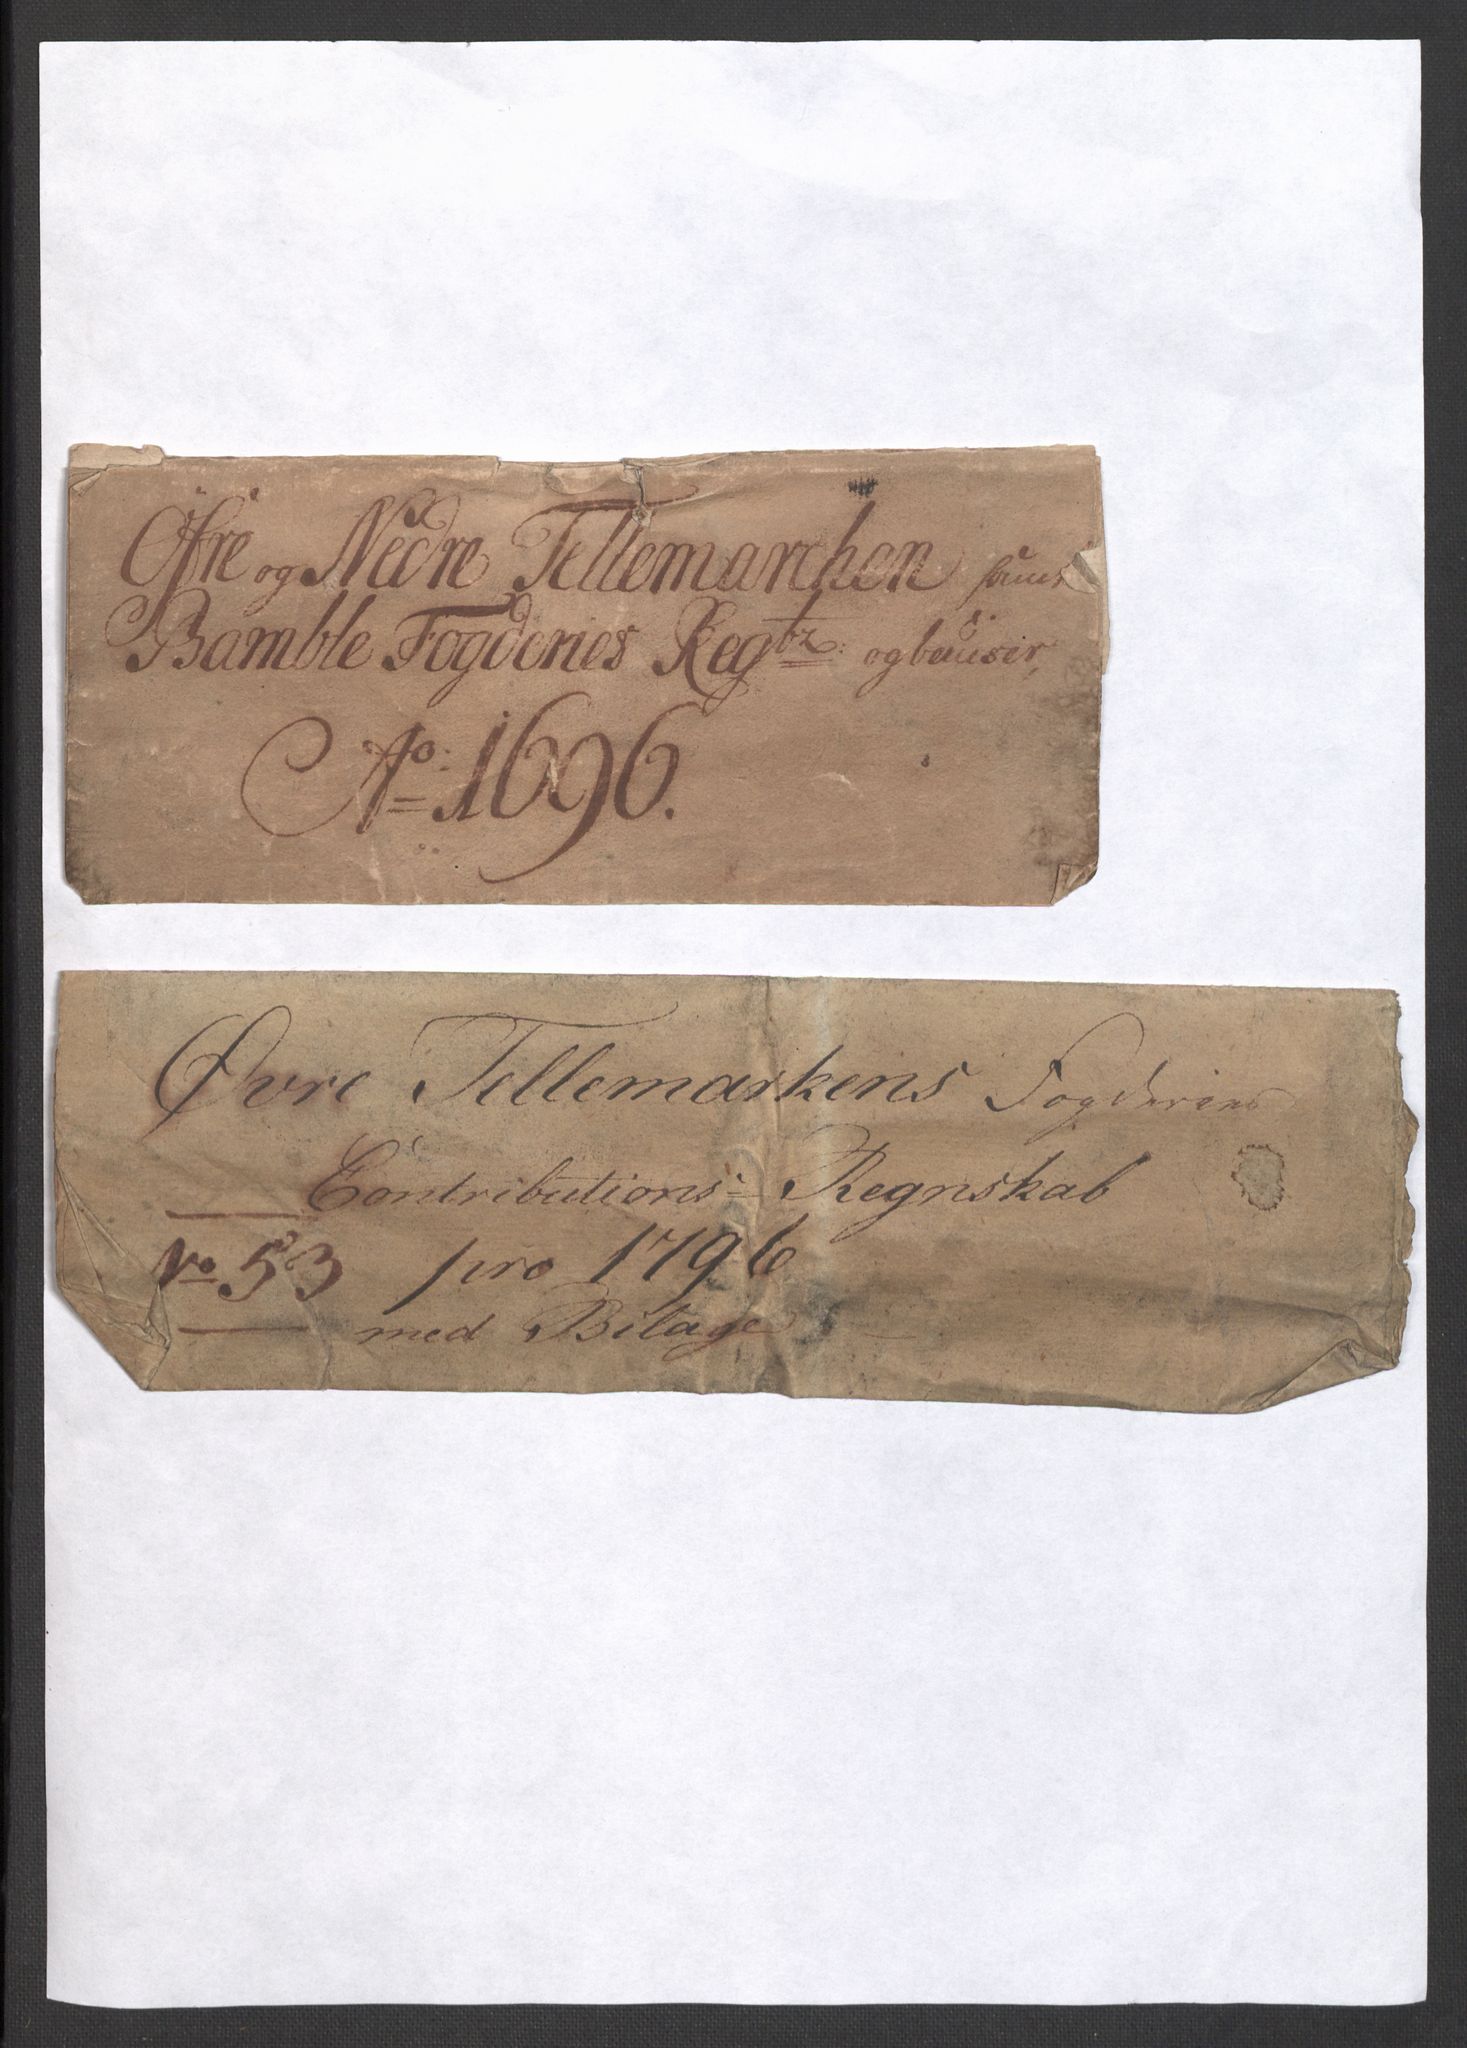 Öfre og Nedre Tellemarchen samt
Bamble Fogderies Regbz: og beviser,
Ao: 1696.
Øvre Tellemarkens Fogderies
Contributions- Regnskab
No 53 pro 1796
med Bilage